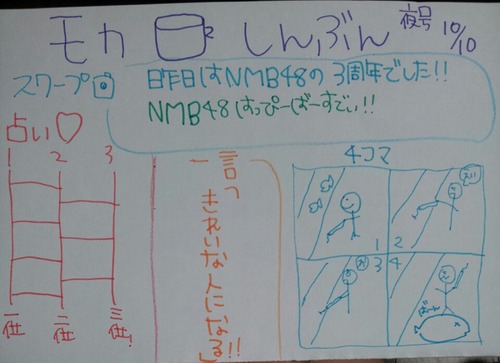 モカしんぶん 夜号 10/10
スクープ
昨日はNMB48の3周年でした!!
NMB48はっぴーばーすでぃ!!
占い♡
1 2 3
一位 二位 三位!
一言「
きれいな人になる」!!
4コマ
1
2
3
4